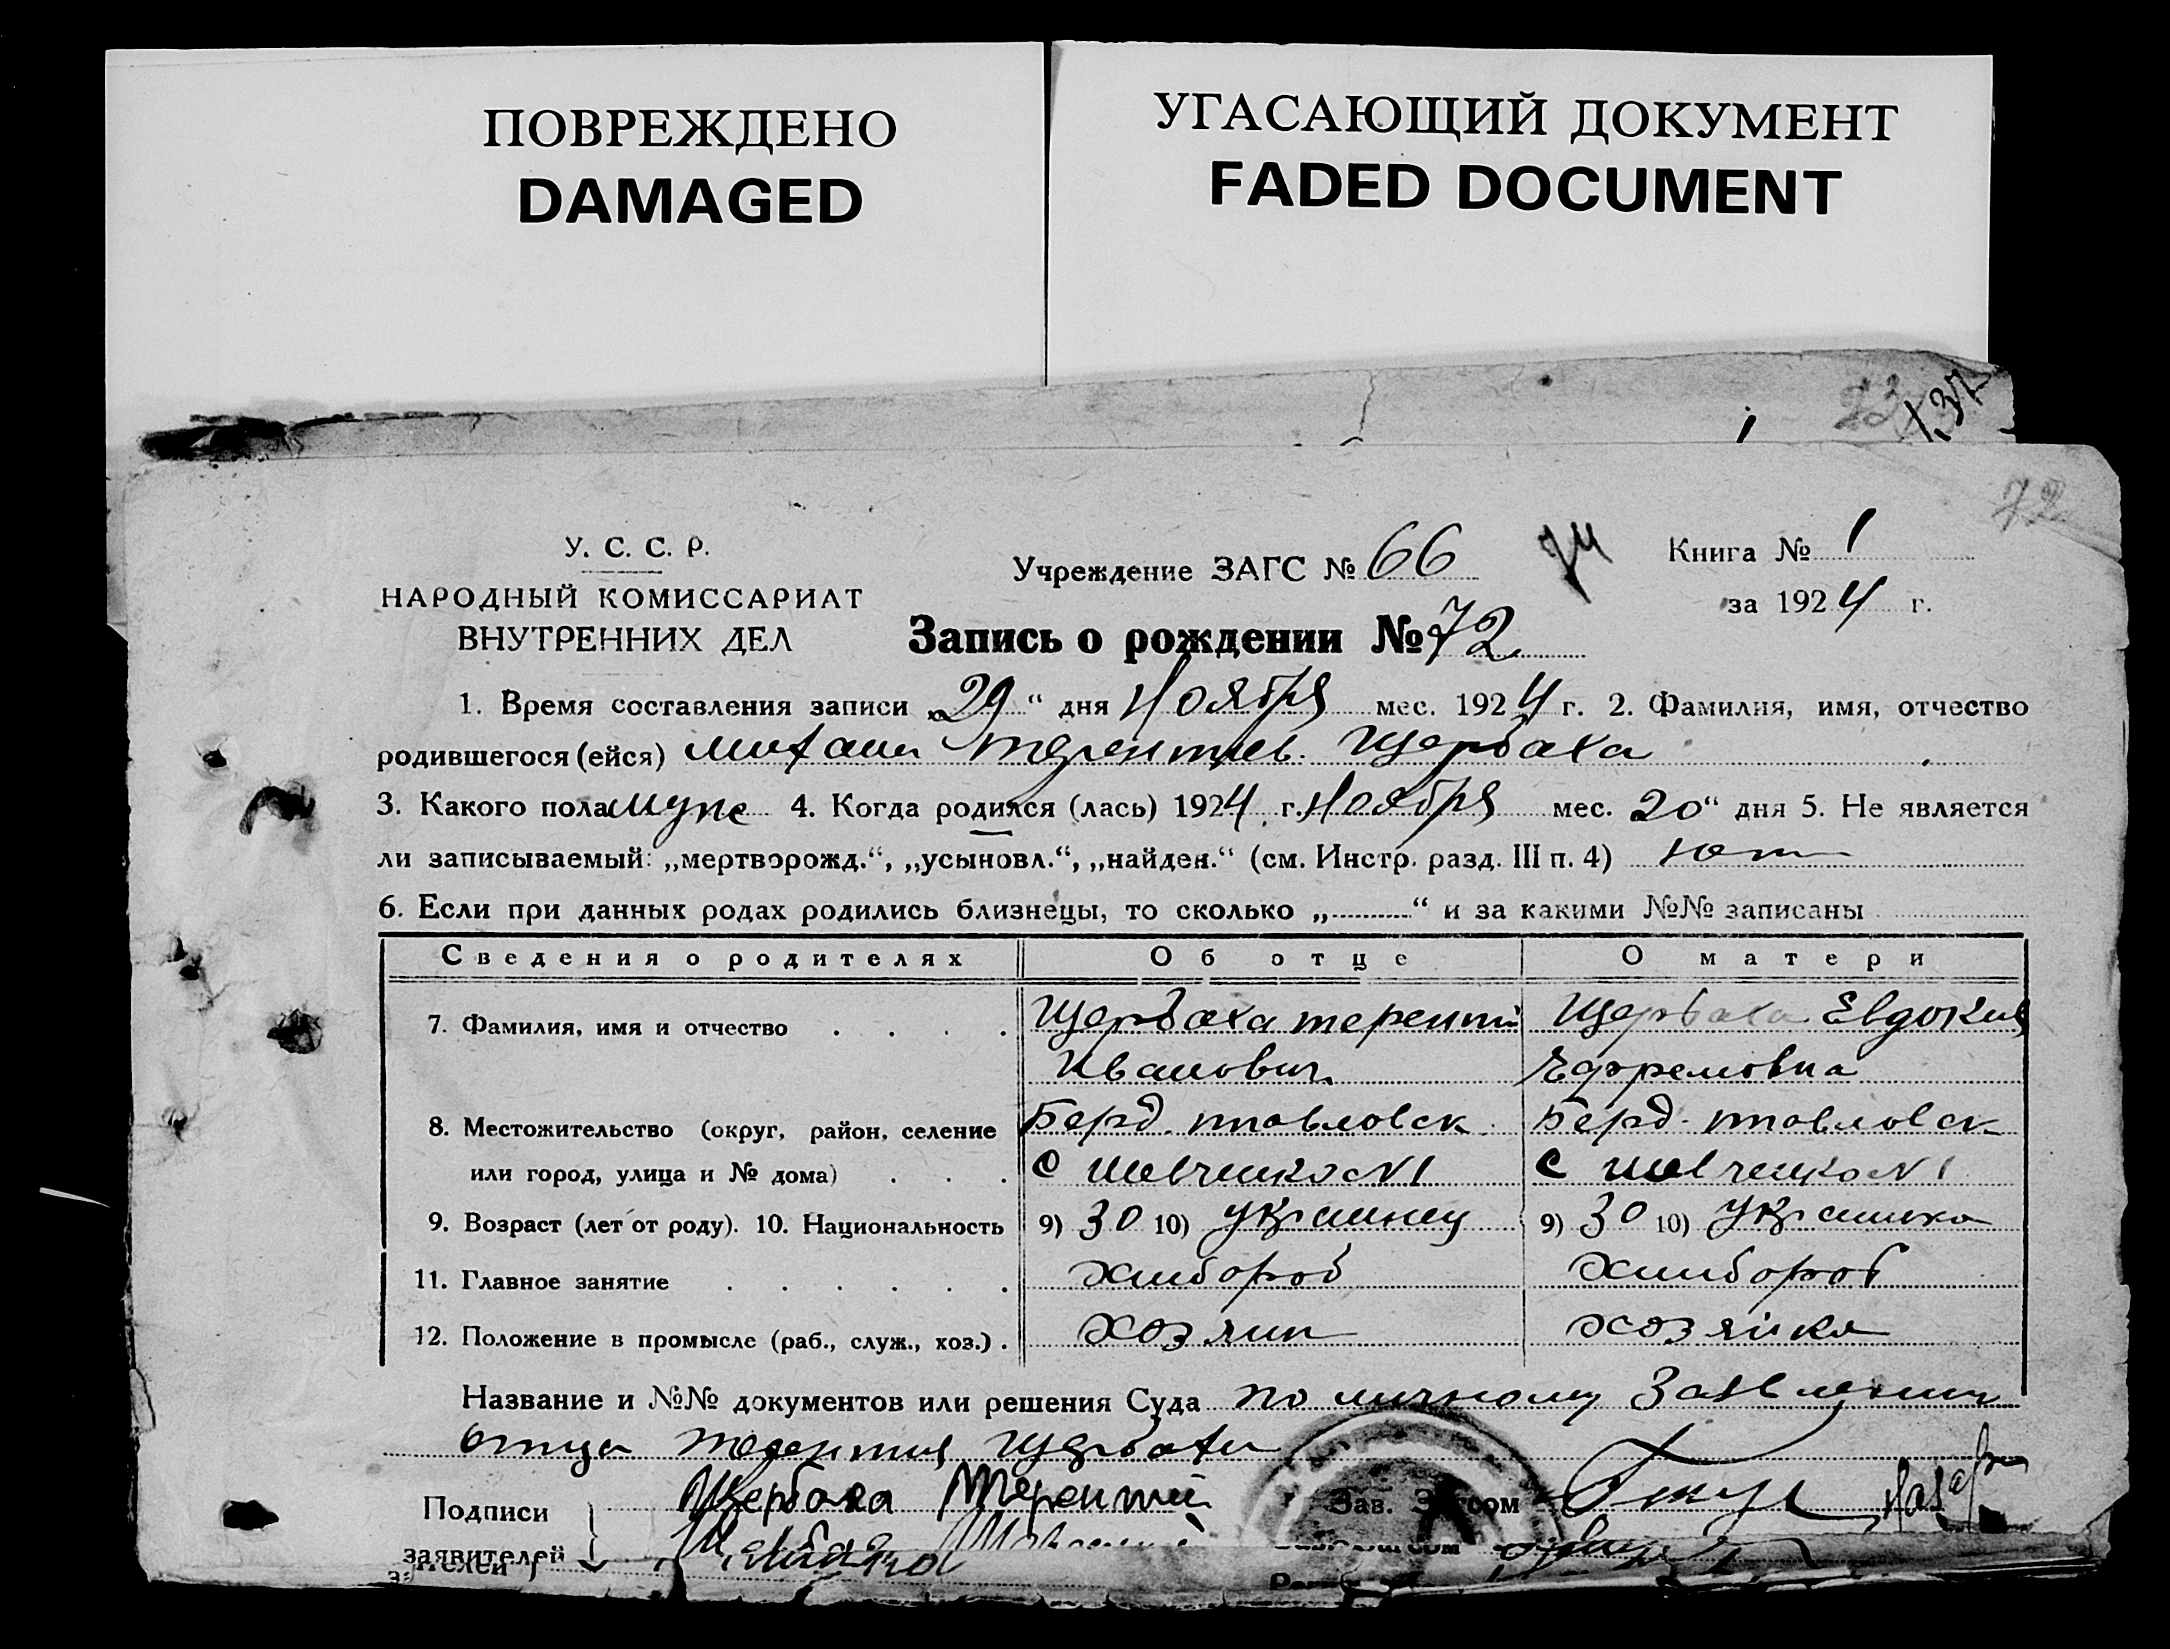 ПОВРЕЖДЕНО
DAMAGED
УГАСАЮЩИЙ ДОКУМЕНТ
FADED DOCUMENT
23 137
72
У. С. С. Р.
НАРОДНЫЙ КОМИССАРИАТ
ВНУТРЕННИХ ДЕЛ
Учреждение ЗАГС № 66
Книга № 1
за 1924 г.
Запись о рождении № 72
1. Время составления записи „29“ дня Ноября мес. 1924 г. 2. Фамилия, имя, отчество
родившегося (ейся) Михаил Терентиев. Щербаха
3. Какого пола муж 4. Когда родился (лась) 1924 г. Ноября мес. 20“ дня 5. Не является
ли записываемый: „мертворожд.“, „усыновл.“, „найден.“ (см. Инстр. разд. III п. 4) нет
6. Если при данных родах родились близнецы, то сколько „..........“ и за какими №№ записаны
Сведения о родителях Об отце О матери
7. Фамилия, имя и отчество . . . . Щербаха терентий Щербаха Евдокия
Иванович Ефремовна
8. Местожительство (округ, район, селение Берд. павловск. Берд. павловск
или город, улица и № дома) . . . с Шевченко N1 с Шевченко N1
9. Возраст (лет от роду). 10. Национальность 9) 30 10) Украинец 9) 30 10) Украинка
11. Главное занятие . . . . . . Хлибороб Хлибороб
12. Положение в промысле (раб., служ., хоз.) . хозяин хозяйка
Название и №№ документов или решения Суда по личному Заявлению
отца Терентия Щербахи
Подписи Щербаха Терентий Зав. Загсом
заявителей